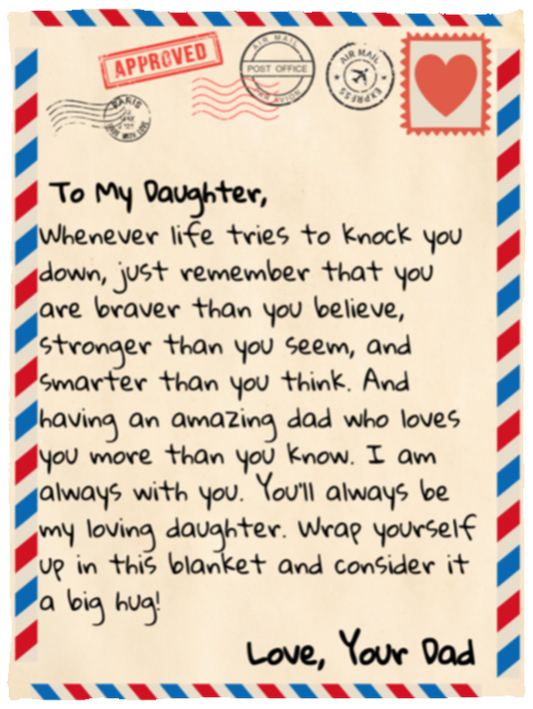 APPROVED
AIR MAIL
POST OFFICE
PAR AVION
AIR MAIL
EXPRESS
PARIS
To My Daughter,
Whenever life tries to knock you
down, just remember that you
are braver than you believe,
stronger than you seem, and
smarter than you think. And
having an amazing dad who loves
you more than you know. I am
always with you. You'll always be
my loving daughter. Wrap yourself
up in this blanket and consider it
a big hug!
Love, Your Dad